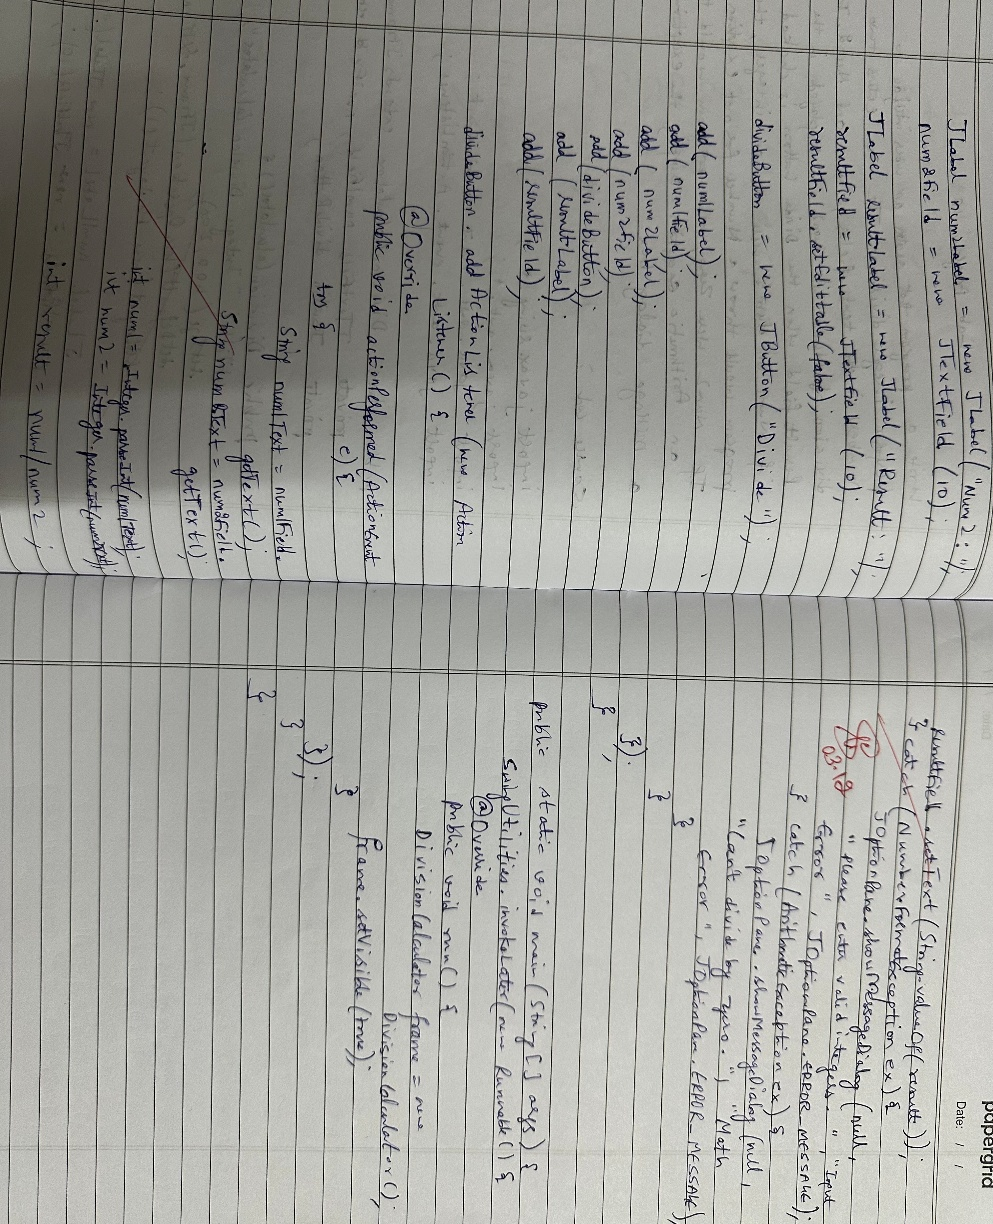 JLabel num2Label = new JLabel("Num2:");
num2field = new JTextField (10);
JLabel resultLabel = new JLabel("Result: ");
resultfield = new JTextField (10);
resultfield.setEditable(false);
divideButton = new JButton("Divide");
add(num1Label);
add(num1field);
add(num2Label);
add(num2field);
add(divideButton);
add(resultLabel);
add(resultField);
divideButton.addActionListener (new Action
Listener() {
@Override
public void actionPerformed (ActionEvent
e) {
try {
String num1Text = num1Field.
getText();
String num2Text = num2Field.
getText();
int num1 = Integer.parseInt(num1Text);
int num2 = Integer.parseInt(num2Text);
int result = num1/num2;
papergrid
Date: / /
resultField.setText(String.valueOf(result));
} catch (NumberFormatException ex) {
JOptionPane.showMessageDialog (null,
"please enter valid integers.", "Input
Error", JOptionPane.ERROR_MESSAGE);
} catch (ArithmeticException ex) {
JOptionPane.showMessageDialog (null,
"Can't divide by zero.", "Math
Error", JOptionPane.ERROR_MESSAGE);
}
}
});
}
public static void main(String[] args) {
SwingUtilities.invokeLater(new Runnable() {
@Override
public void run() {
DivisionCalculator frame = new
DivisionCalculator();
frame.setVisible(true);
}
});
}
}